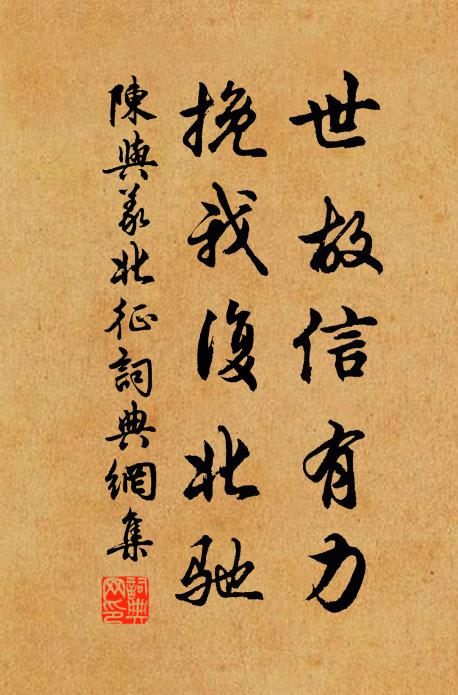 世故信有力
挽我復北馳
陳與義北征詞典網集
詞典網印